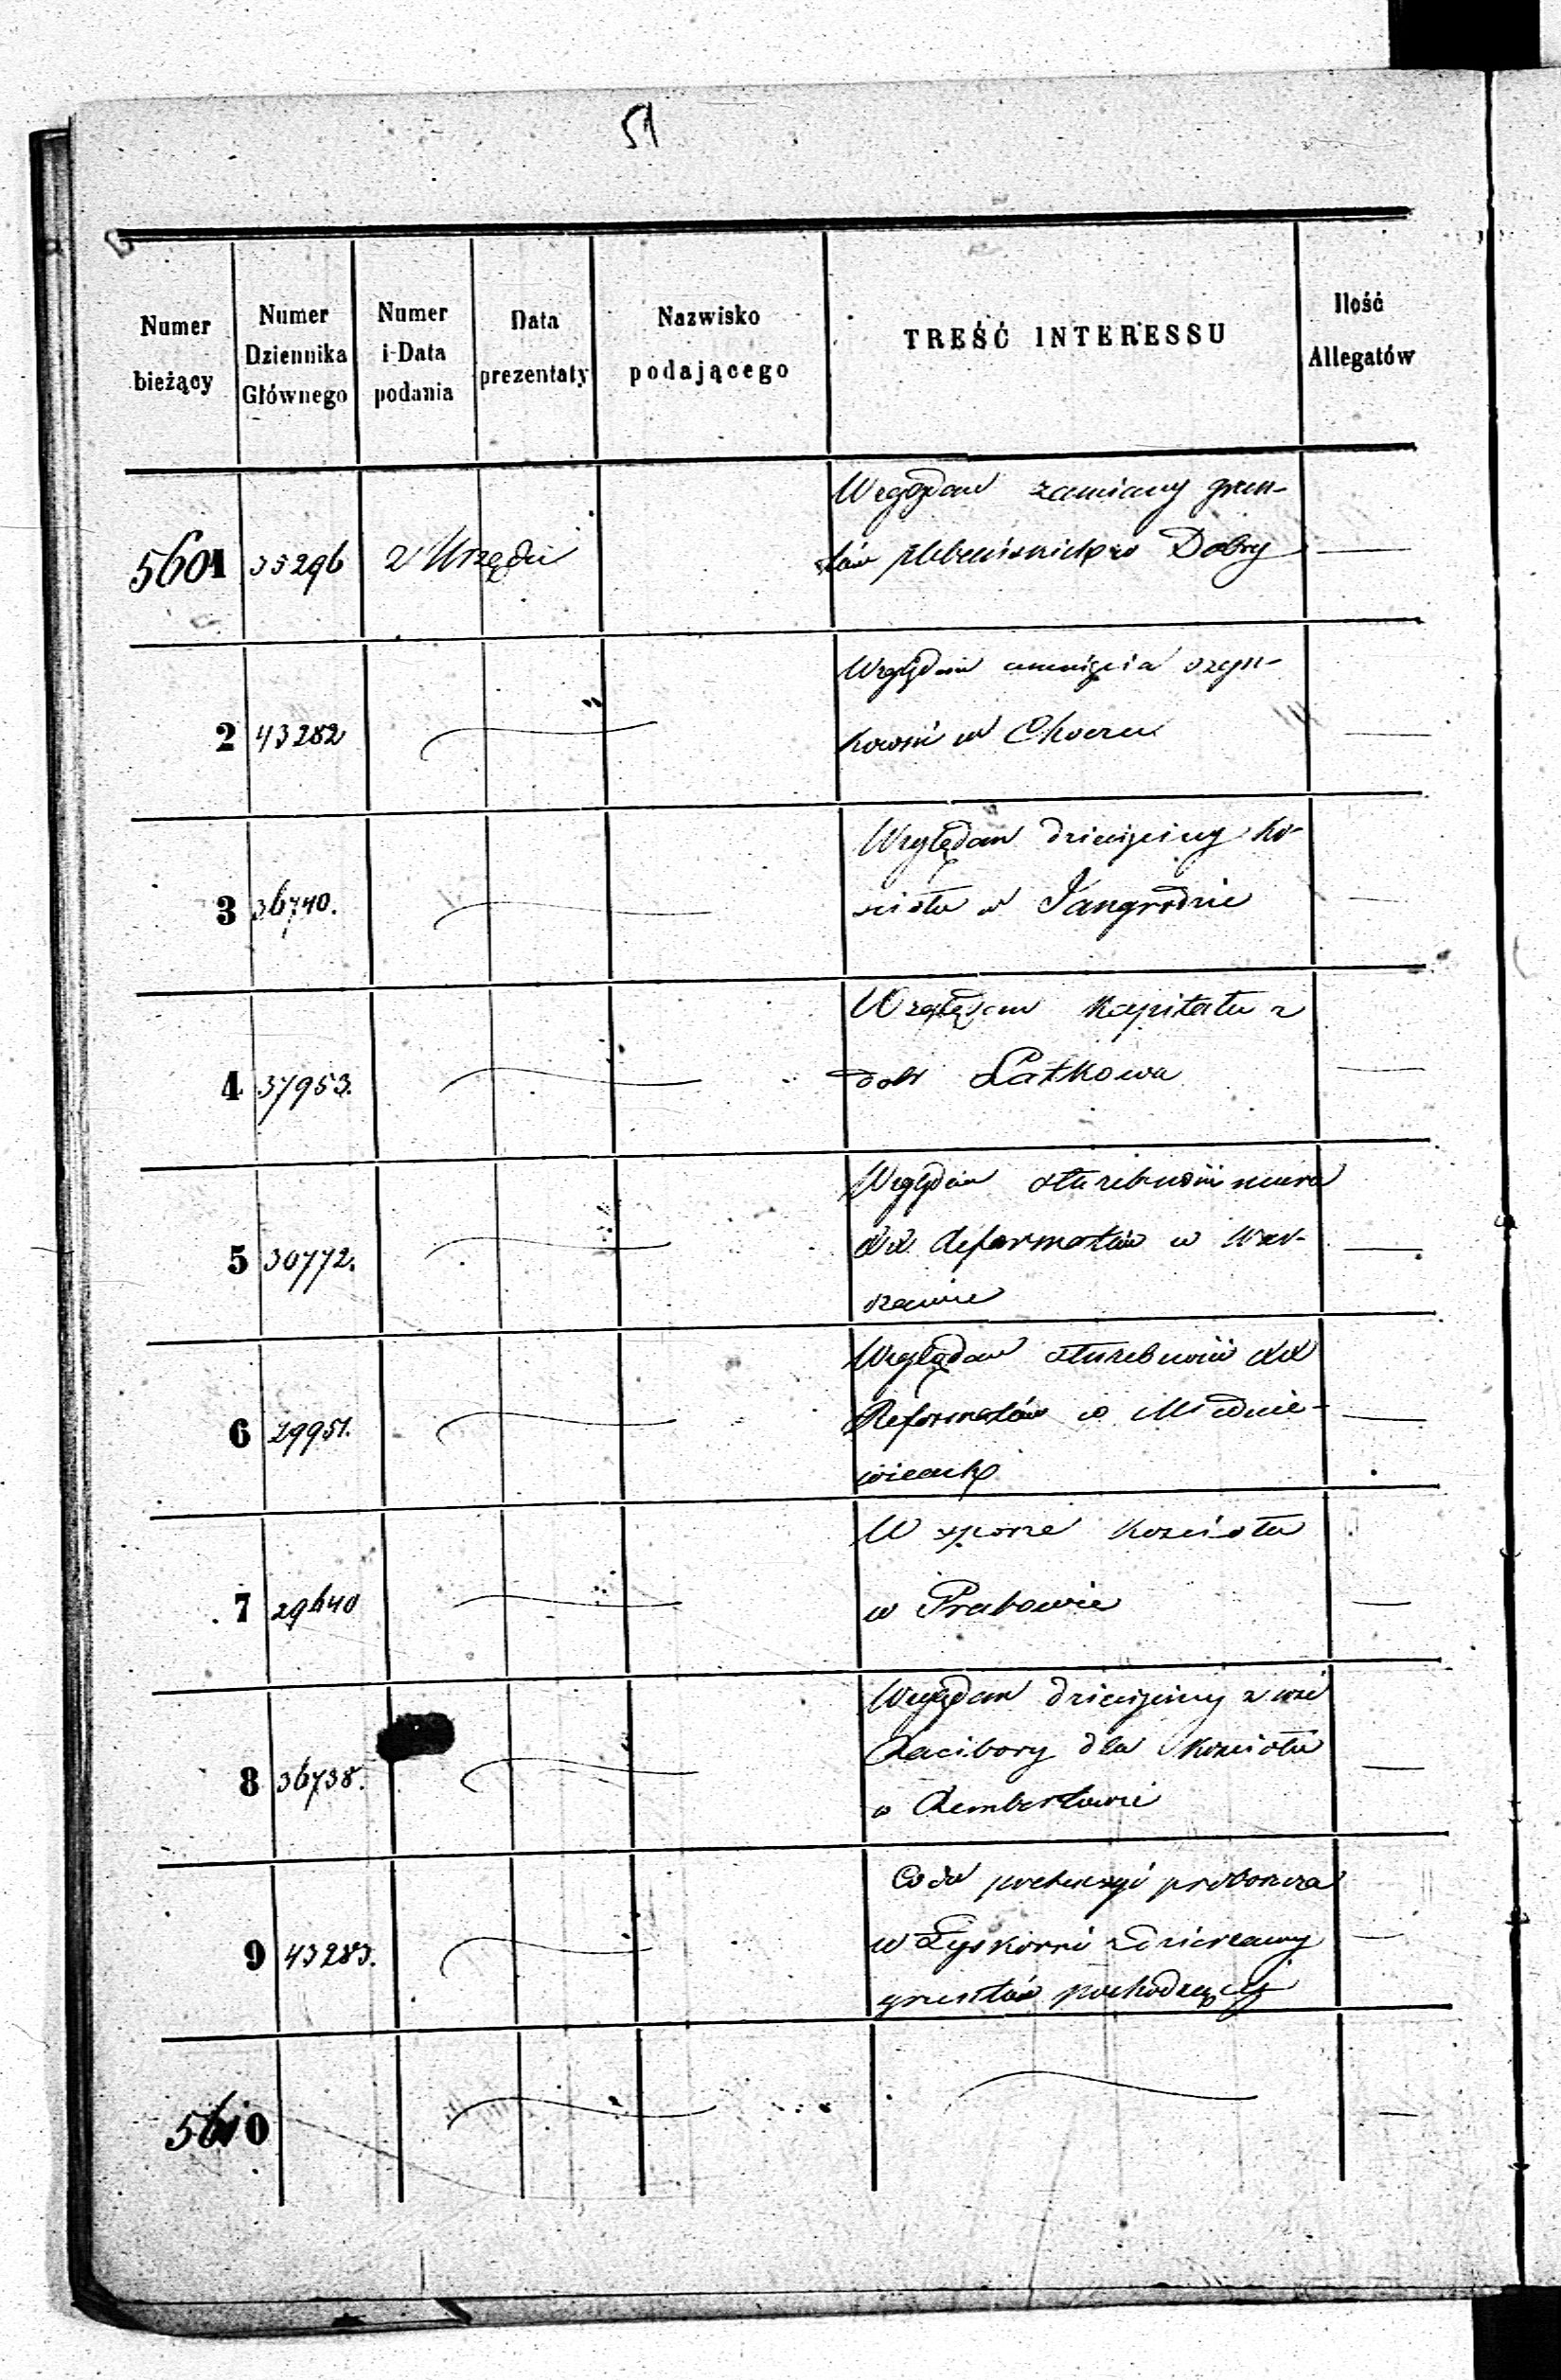 51
Numer bieżący
Numer Dziennika Głównego
Numer i Data podania
Data prezentaty
Nazwisko podającego
TREŚĆ INTERESSU
Ilość Allegatów
5601 35296 z Urzędu
Względem zamiany grun-
tów plebańskich Dobry —
2 43282
Względem usunięcia szyn-
kowni w Choczu —
3 36740.
Względem dziesięciny ko-
scioła w Jangrodzie —
4 37953.
Względem Kapitału z
dobr Latkowa —
5 30772.
Względem muru
XX Reformatów w War-
szawie —
6 29951.
Względem XX
Reformatów w Miednie-
wicach —
7 29640
W sporze Kościoła
w Grabowie —
8 36738.
Względem dziesięciny z wsi
Racibory dla Kościoła
w Rembertowie —
9 43283.
Co do pretensyi proboszcza
w Łyskorni z dzierżawy
gruntów pochodzącej —
5610 —